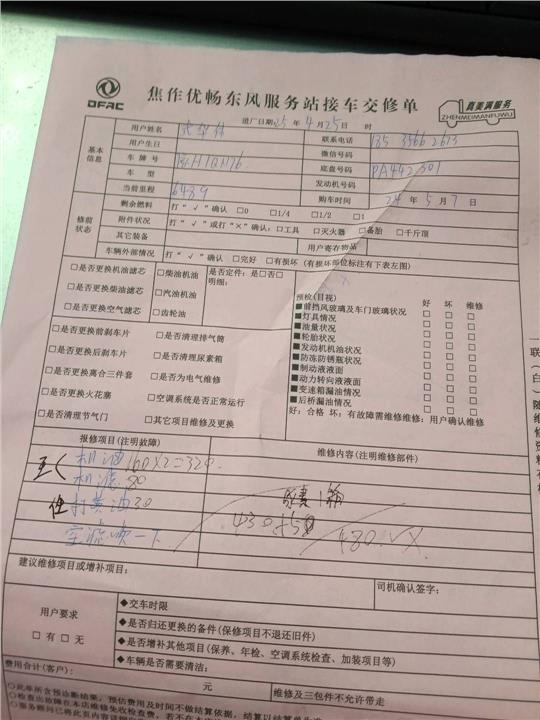 DFAC
焦作优畅东风服务站接车交修单
真美满服务
ZHENMEIMANFUWU
进厂日期25年4月25日 时
基本信息
用户姓名
联系电话 135 3566 2613
用户生日
微信号码
车牌号
底盘号码 PA442301
车型
发动机号码
当前里程 6489
购车时间 24年5月7日
修前状态
剩余燃料 打“√”确认 □0 □1/4 □1/2 □1
附件状况 打“√”或打“×”确认：□工具 □灭火器 □备胎 □千斤顶
其它装备
用户寄存物品
车辆外部情况 打“√”确认 □完好 □有损坏（有损坏部位标注有下表左图）
□是否更换机油滤芯 □柴油机油 是否定件：是□否□
□是否更换柴油滤芯 □汽油机油 明细：
□是否更换空气滤芯 □齿轮油
□是否更换前刹车片 □是否清理排气筒
□是否更换后刹车片 □是否清理尿素箱
□是否更换离合三件套 □是否为电气维修
□是否更换火花塞 □空调系统是否正常运行
□是否清理节气门 □其它项目维修及更换
预检(目视) 好 坏 维修
■前挡风玻璃及车门玻璃状况 □ □ □
■灯具情况 □ □ □
■油量状况 □ □ □
■轮胎状况 □ □ □
■发动机机油状况 □ □ □
■防冻防锈瓶状况 □ □ □
■制动液液面 □ □ □
■动力转向液液面 □ □ □
■变速箱漏油情况 □ □ □
■后桥漏油情况 □ □ □
好：合格 坏：有故障需维修维修：用户确认维修
报修项目(注明故障)
维修内容（注明维修部件）
机油160×2=320
机滤80
打黄油30
空滤吹一下
尿素1箱
430+50
480.VX
建议维修项目或增补项目：
司机确认签字：
用户要求
□有 □无
◆交车时限
◆是否归还更换的备件(保修项目不退还旧件)
◆是否增补其他项目(保养、年检、空调系统检查、加装项目等)
◆车辆是否需要清洁：
费用合计(客户)： 元
维修及三包件不允许带走